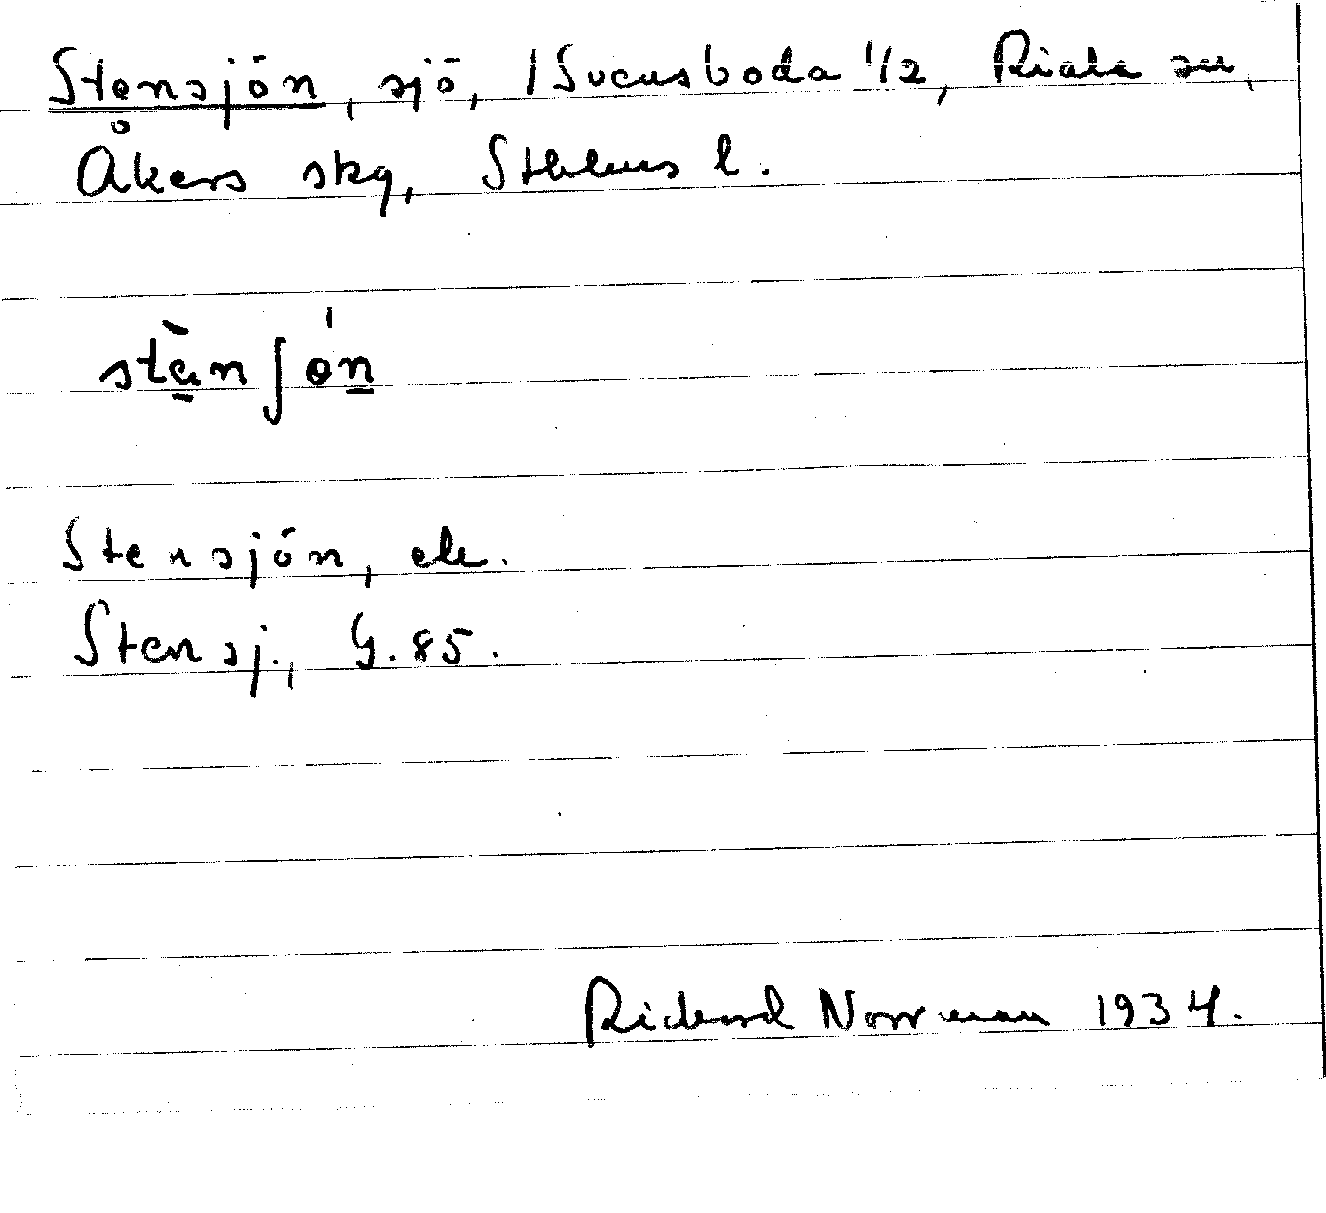 Stensjön, sjö, 1 Svensboda 1/2, Riala sn,
Åkers skg, Sthlms l.
stè̱nʃó̱n
Stensjön, ek.
Stensj., G. 85.
Rickard Norrman 1934.